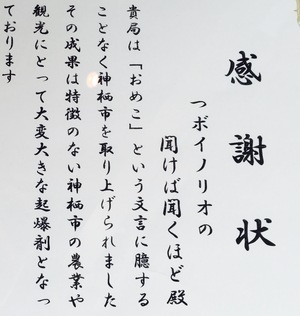 感謝状
つボイノリオの
聞けば聞くほど殿
貴局は「おめこ」という文言に臆する
ことなく神栖市を取り上げられました
その成果は特徴のない神栖市の農業や
観光にとって大変大きな起爆剤となっ
ております